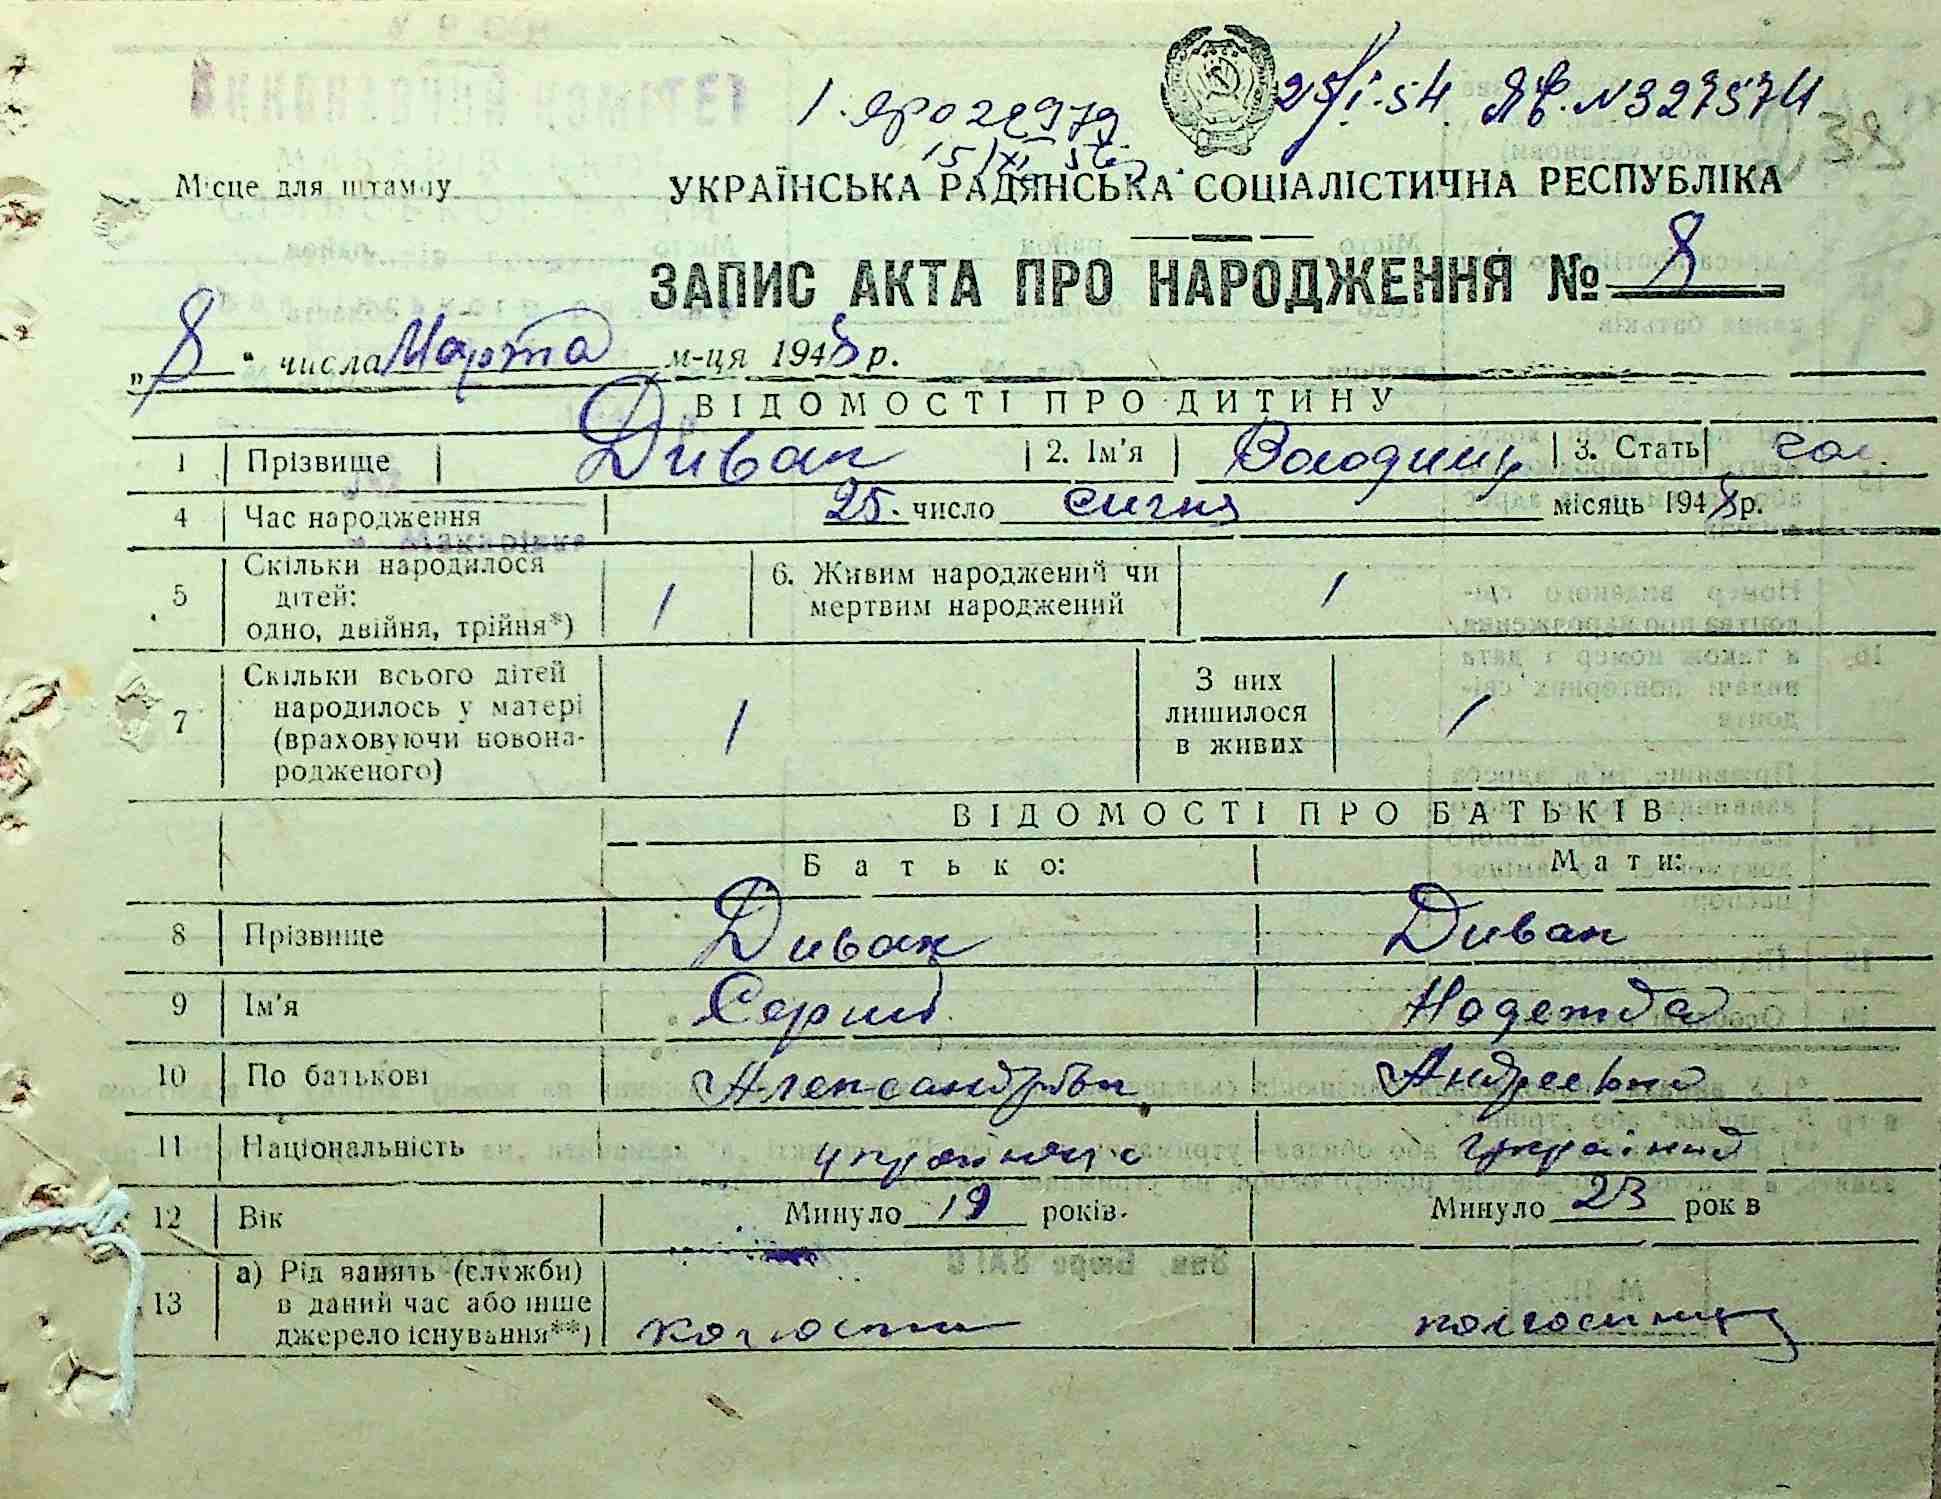 25/I-54 ЯЄ. N 327574
Місце для штампу
УКРАЇНСЬКА РАДЯНСЬКА СОЦІАЛІСТИЧНА РЕСПУБЛІКА
ЗАПИС АКТА ПРО НАРОДЖЕННЯ № 8
„ 8 " числа Марта м-ця 1948 р.
ВІДОМОСТІ ПРО ДИТИНУ
1 Прізвище Диван 2. Ім'я Володимир 3. Стать чол.
4 Час народження 25. число сичня місяць 1948 р.
5 Скільки народилося
дітей:
одно, двійня, трійня*) 1
6. Живим народжений чи
мертвим народжений 1
7 Скільки всього дітей
народилось у матері
(враховуючи новона-
родженого) 1
З них
лишилося
в живих 1
ВІДОМОСТІ ПРО БАТЬКІВ
Батько: Мати:
8 Прізвище Диван Диван
9 Ім'я Сергий Надежда
10 По батькові Александрович Андреевна
11 Національність українец українка
12 Вік Минуло 19 років. Минуло 23 рок в
13 а) Рід занять (служби)
в даний час або інше
джерело існування**) колгоспник колгоспниця